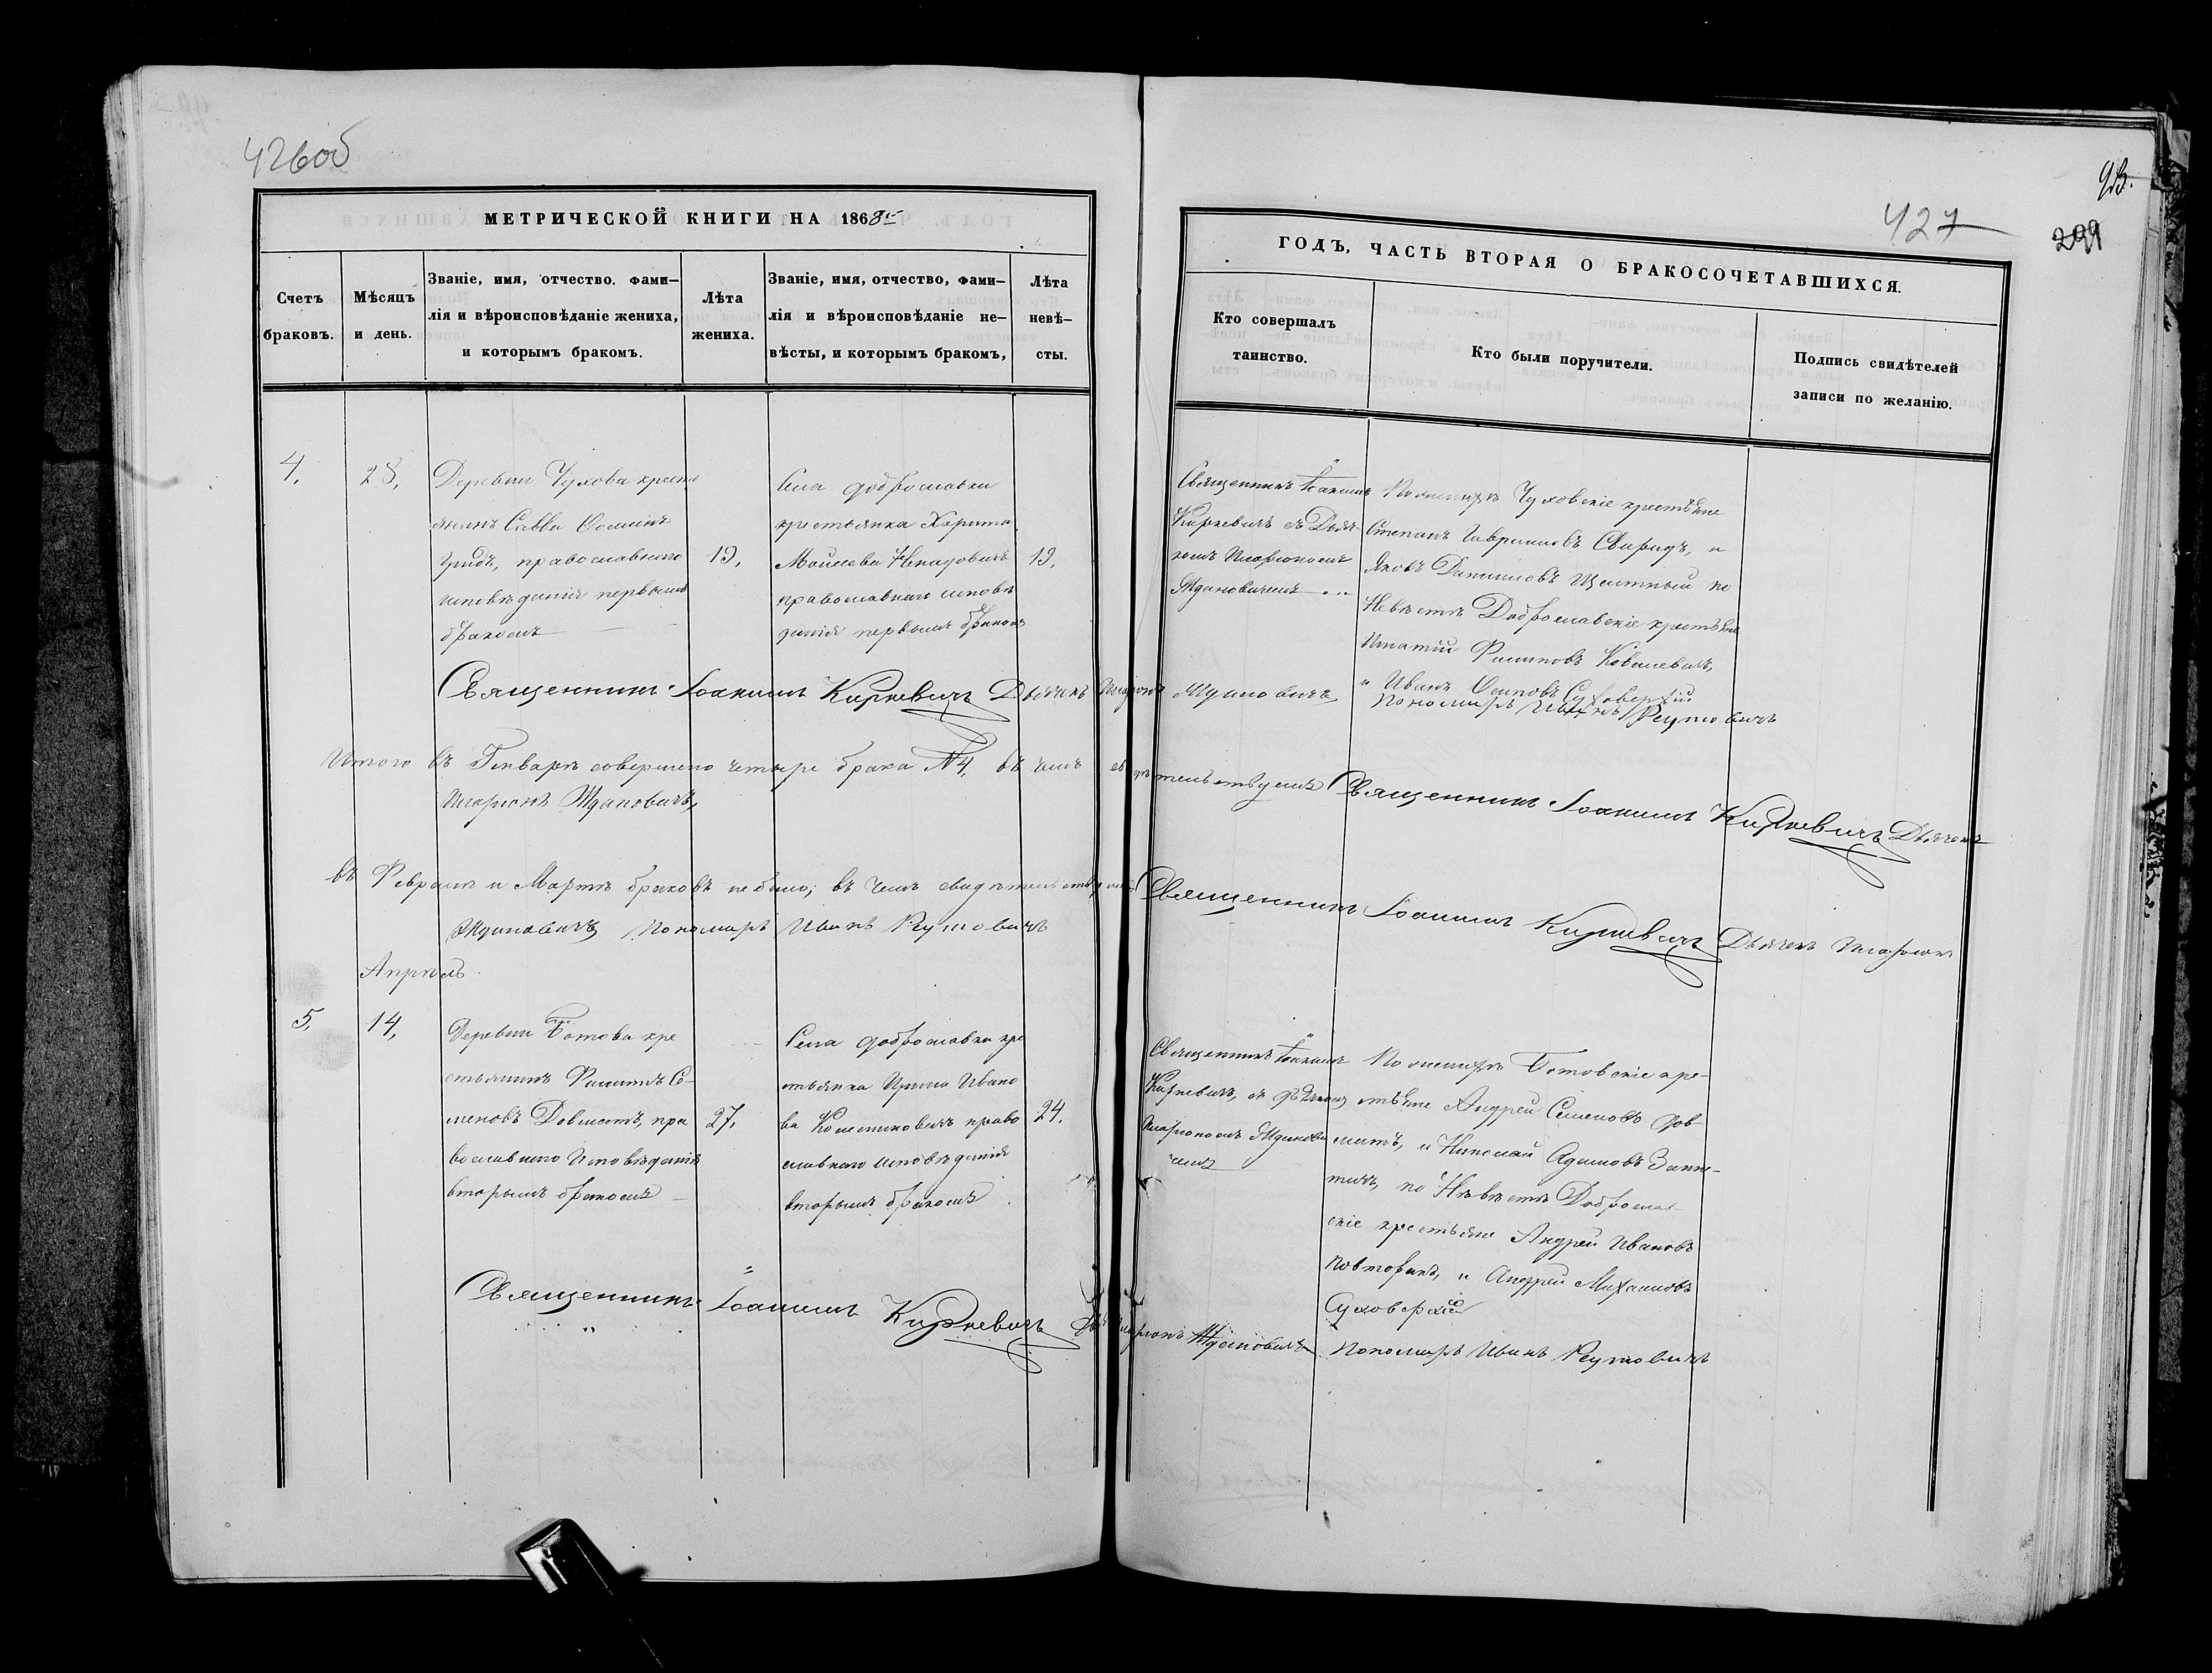 426об
МЕТРИЧЕСКОЙ КНИГИ НА 1868й
Счетъ браковъ.
Мѣсяцъ и день.
Званіе, имя, отчество. фами-
лія и вѣроисповѣданіе жениха,
и которымъ бракомъ.
Лѣта жениха.
Званіе, имя, отчество, фами-
лія и вѣроисповѣданіе не-
вѣсты, и которымъ бракомъ,
Лѣта невѣ-
сты.
4.
28,
Деревни Чухова кресть
янинъ Савва Ѳоминъ
православнаго
исповѣданія первымъ
бракомъ
19,
Села Доброславки
крестьянка Харита
Моисеева
православнаго исповѣ
данія первымъ бракомъ
19,
Священникъ Іоакимъ Киркевичъ Дьячекъ Иларіонъ Ждановичъ
Итого въ Генварѣ совершено четыре брака №4, въ чемъ свидѣтельствуемъ Священникъ Іоакимъ Киркевичъ Дьячекъ
Иларіонъ Ждановичъ,
въ Февралѣ и Мартѣ браковъ не было; въ чемъ свидѣтельствуемъ Священникъ Іоакимъ Киркевичъ Дьячекъ Иларіонъ
Ждановичъ Пономарь Иванъ Реутовичъ
Апрѣль.
5,
14,
Деревни Ботова кре
стьянинъ Филипъ Се-
меновъ Довматъ, пра
вославнаго Исповѣданія
вторымъ бракомъ
27,
Села Доброславки кре
стьянка Ирина Ивано
ва православнаго исповѣданія
вторымъ бракомъ
24.
Священникъ Іоакимъ Киркевичъ Иларіонъ Ждановичъ
Пономарь Иванъ Реутовичъ
427
93.
299
ГОДЪ, ЧАСТЬ ВТОРАЯ О БРАКОСОЧЕТАВШИХСЯ.
Кто совершалъ
таинство.
Кто были поручители.
Подпись свидѣтелей
записи по желанію.
Священникъ Іоакимъ
Киркевичъ съ Дьяч
комъ Иларіономъ
Ждановичемъ
По женихѣ Чуховскіе крестьяне
Степанъ Гавриловъ Свиридъ, и
Яковъ Даниловъ по
Невѣстѣ Доброславскіе крестьяне
Игнатій Филиповъ Ковалевичъ,
и Иванъ Осиповъ Суховерхій
Пономарь Иванъ Реутовичъ
Священникъ Іоакимъ
Киркевичъ, съ Дьячкомъ
Иларіономъ Жданови
чемъ
По женихѣ Ботовскіе кре-
стьяне Андрей Семеновъ Дов-
матъ, и Николай Адамовъ
по Невѣстѣ Доброслав
скіе крестьяне Андрей Ивановъ
и Андрей Михаиловъ
Суховерхій